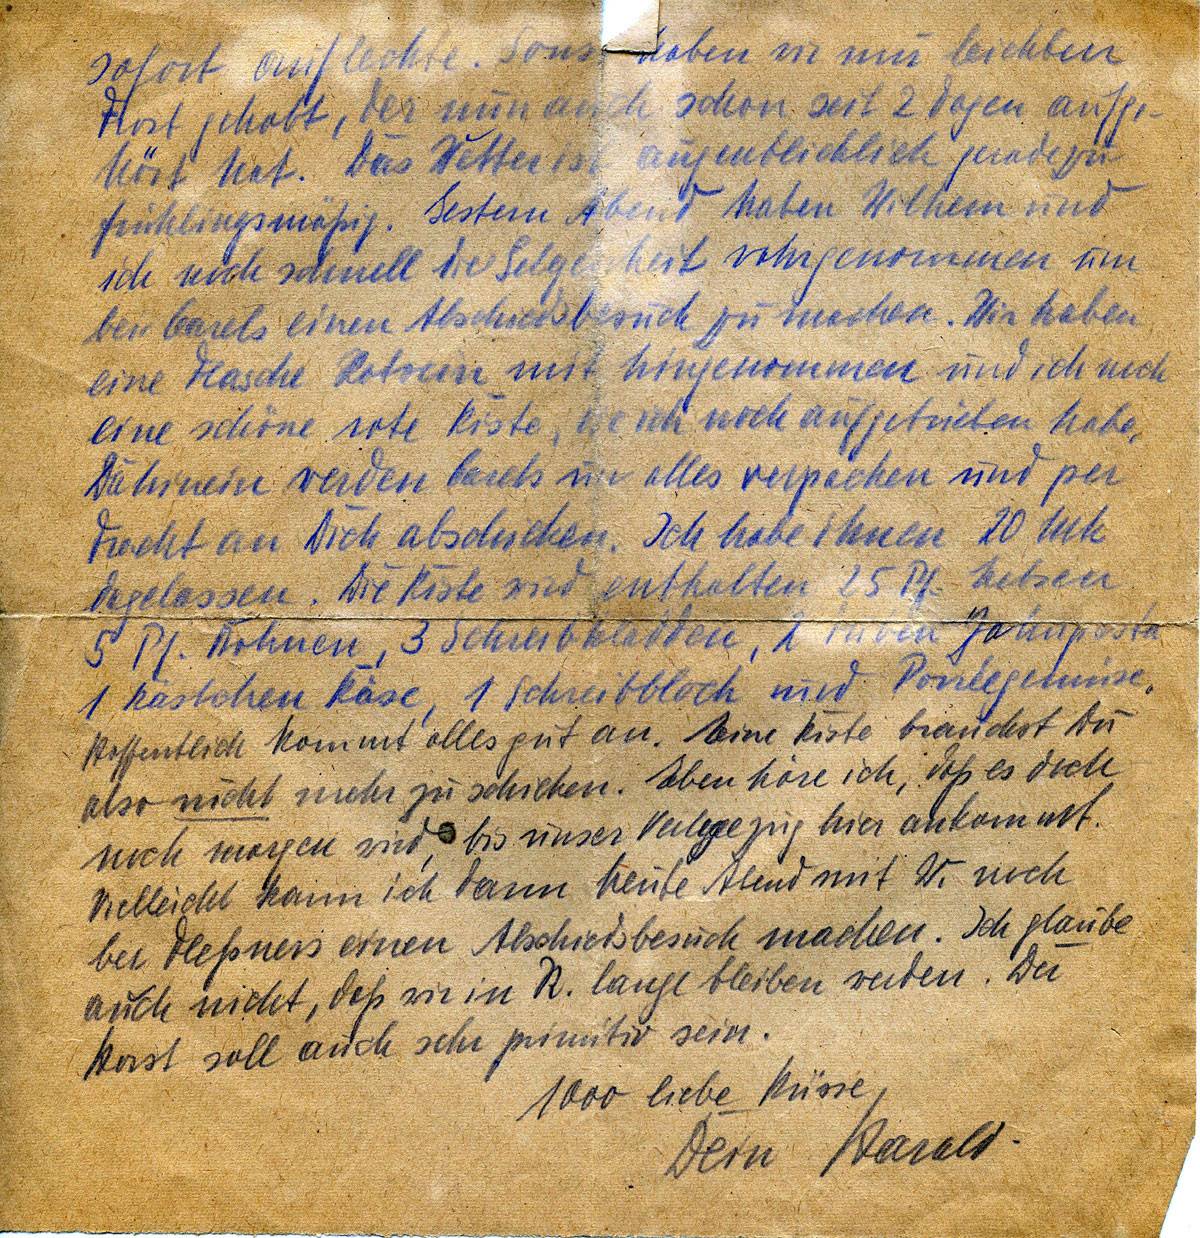 sofort auflechte. Sonst haben wir nur leichten
Frost gehabt, der nun auch schon seit 2 Tagen aufge-
hört hat. Das Wetter ist augenblicklich geradezu
frühlingsmäßig. Gestern Abend haben Wilhem und
ich noch schnell die Gelgenheit wahrgenommen um
bei Barels einen Abschiedsbesuch zu machen. Wir haben
eine Flasche Rotwein mit hingenommen und ich noch
eine schöne rote Kiste, die ich noch aufgetrieben habe.
Dahinein werden Barels nun alles verpacken und per
Fracht an Dich abschicken. Ich habe ihnen 20 Mk
dagelassen. Die Kiste wird enthalten 25 Pf. Erbsen
5 Pf. Bohnen, 3 Schreibkladden, 2 Tuben Zahnpasta
1 Kästchen Käse, 1 Schreibblock und Porréegemüse.
Hoffentlich kommt alles gut an. Eine Kiste brauchst Du
also nicht mehr zu schicken. Eben höre ich, daß es doch
noch morgen wird, bis unser Verlegezug hier ankommt.
Vielleicht kann ich dann heute Abend mit W. noch
bei Fleßners einen Abschiedsbesuch machen. Ich glaube
auch nicht, daß wir in R. lange bleiben werden. Der
Horst soll auch sehr primitiv sein.
1000 liebe Küsse,
Dein Harald.